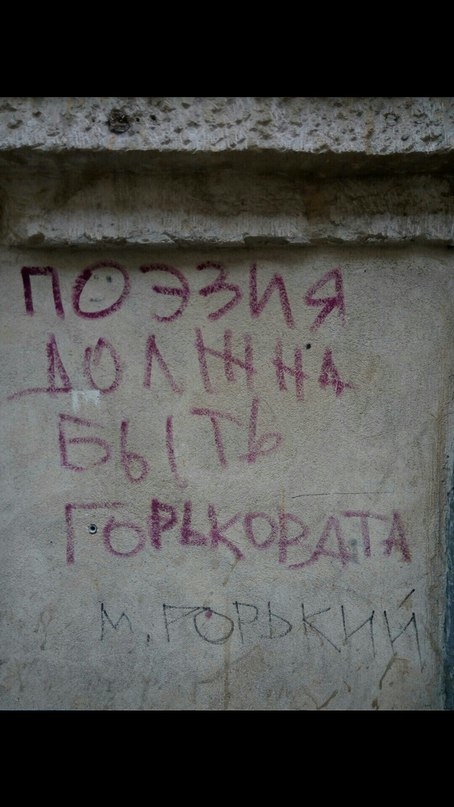 ПОЭЗИЯ
ДОЛЖНА
БЫТЬ
ГОРЬКОРДТА
М. ГОРЬКИЙ